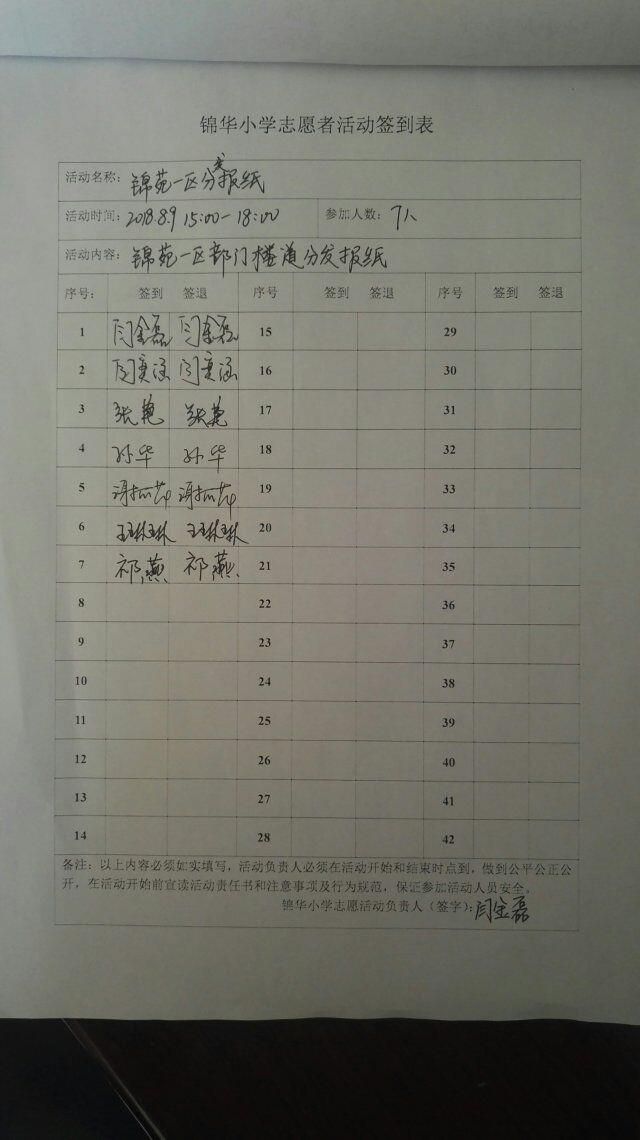 锦华小学志愿者活动签到表
活动名称：锦苑一区分发报纸
活动时间：2018.8.9 15:00-18:00 参加人数：7人
活动内容：锦苑一区部门楼道分发报纸
序号： 签到 签退 序号 签到 签退 序号 签到 签退
1 闫金磊 闫金磊 15 29
2 闫奕涵 闫奕涵 16 30
3 张艳 张艳 17 31
4 孙华 孙华 18 32
5 19 33
6 王琳琳 王琳琳 20 34
7 祁燕 祁燕 21 35
8 22 36
9 23 37
10 24 38
11 25 39
12 26 40
13 27 41
14 28 42
备注：以上内容必须如实填写，活动负责人必须在活动开始和结束时点到，做到公平公正公
开，在活动开始前宣读活动责任书和注意事项及行为规范，保证参加活动人员安全。
锦华小学志愿活动负责人（签字）：闫金磊